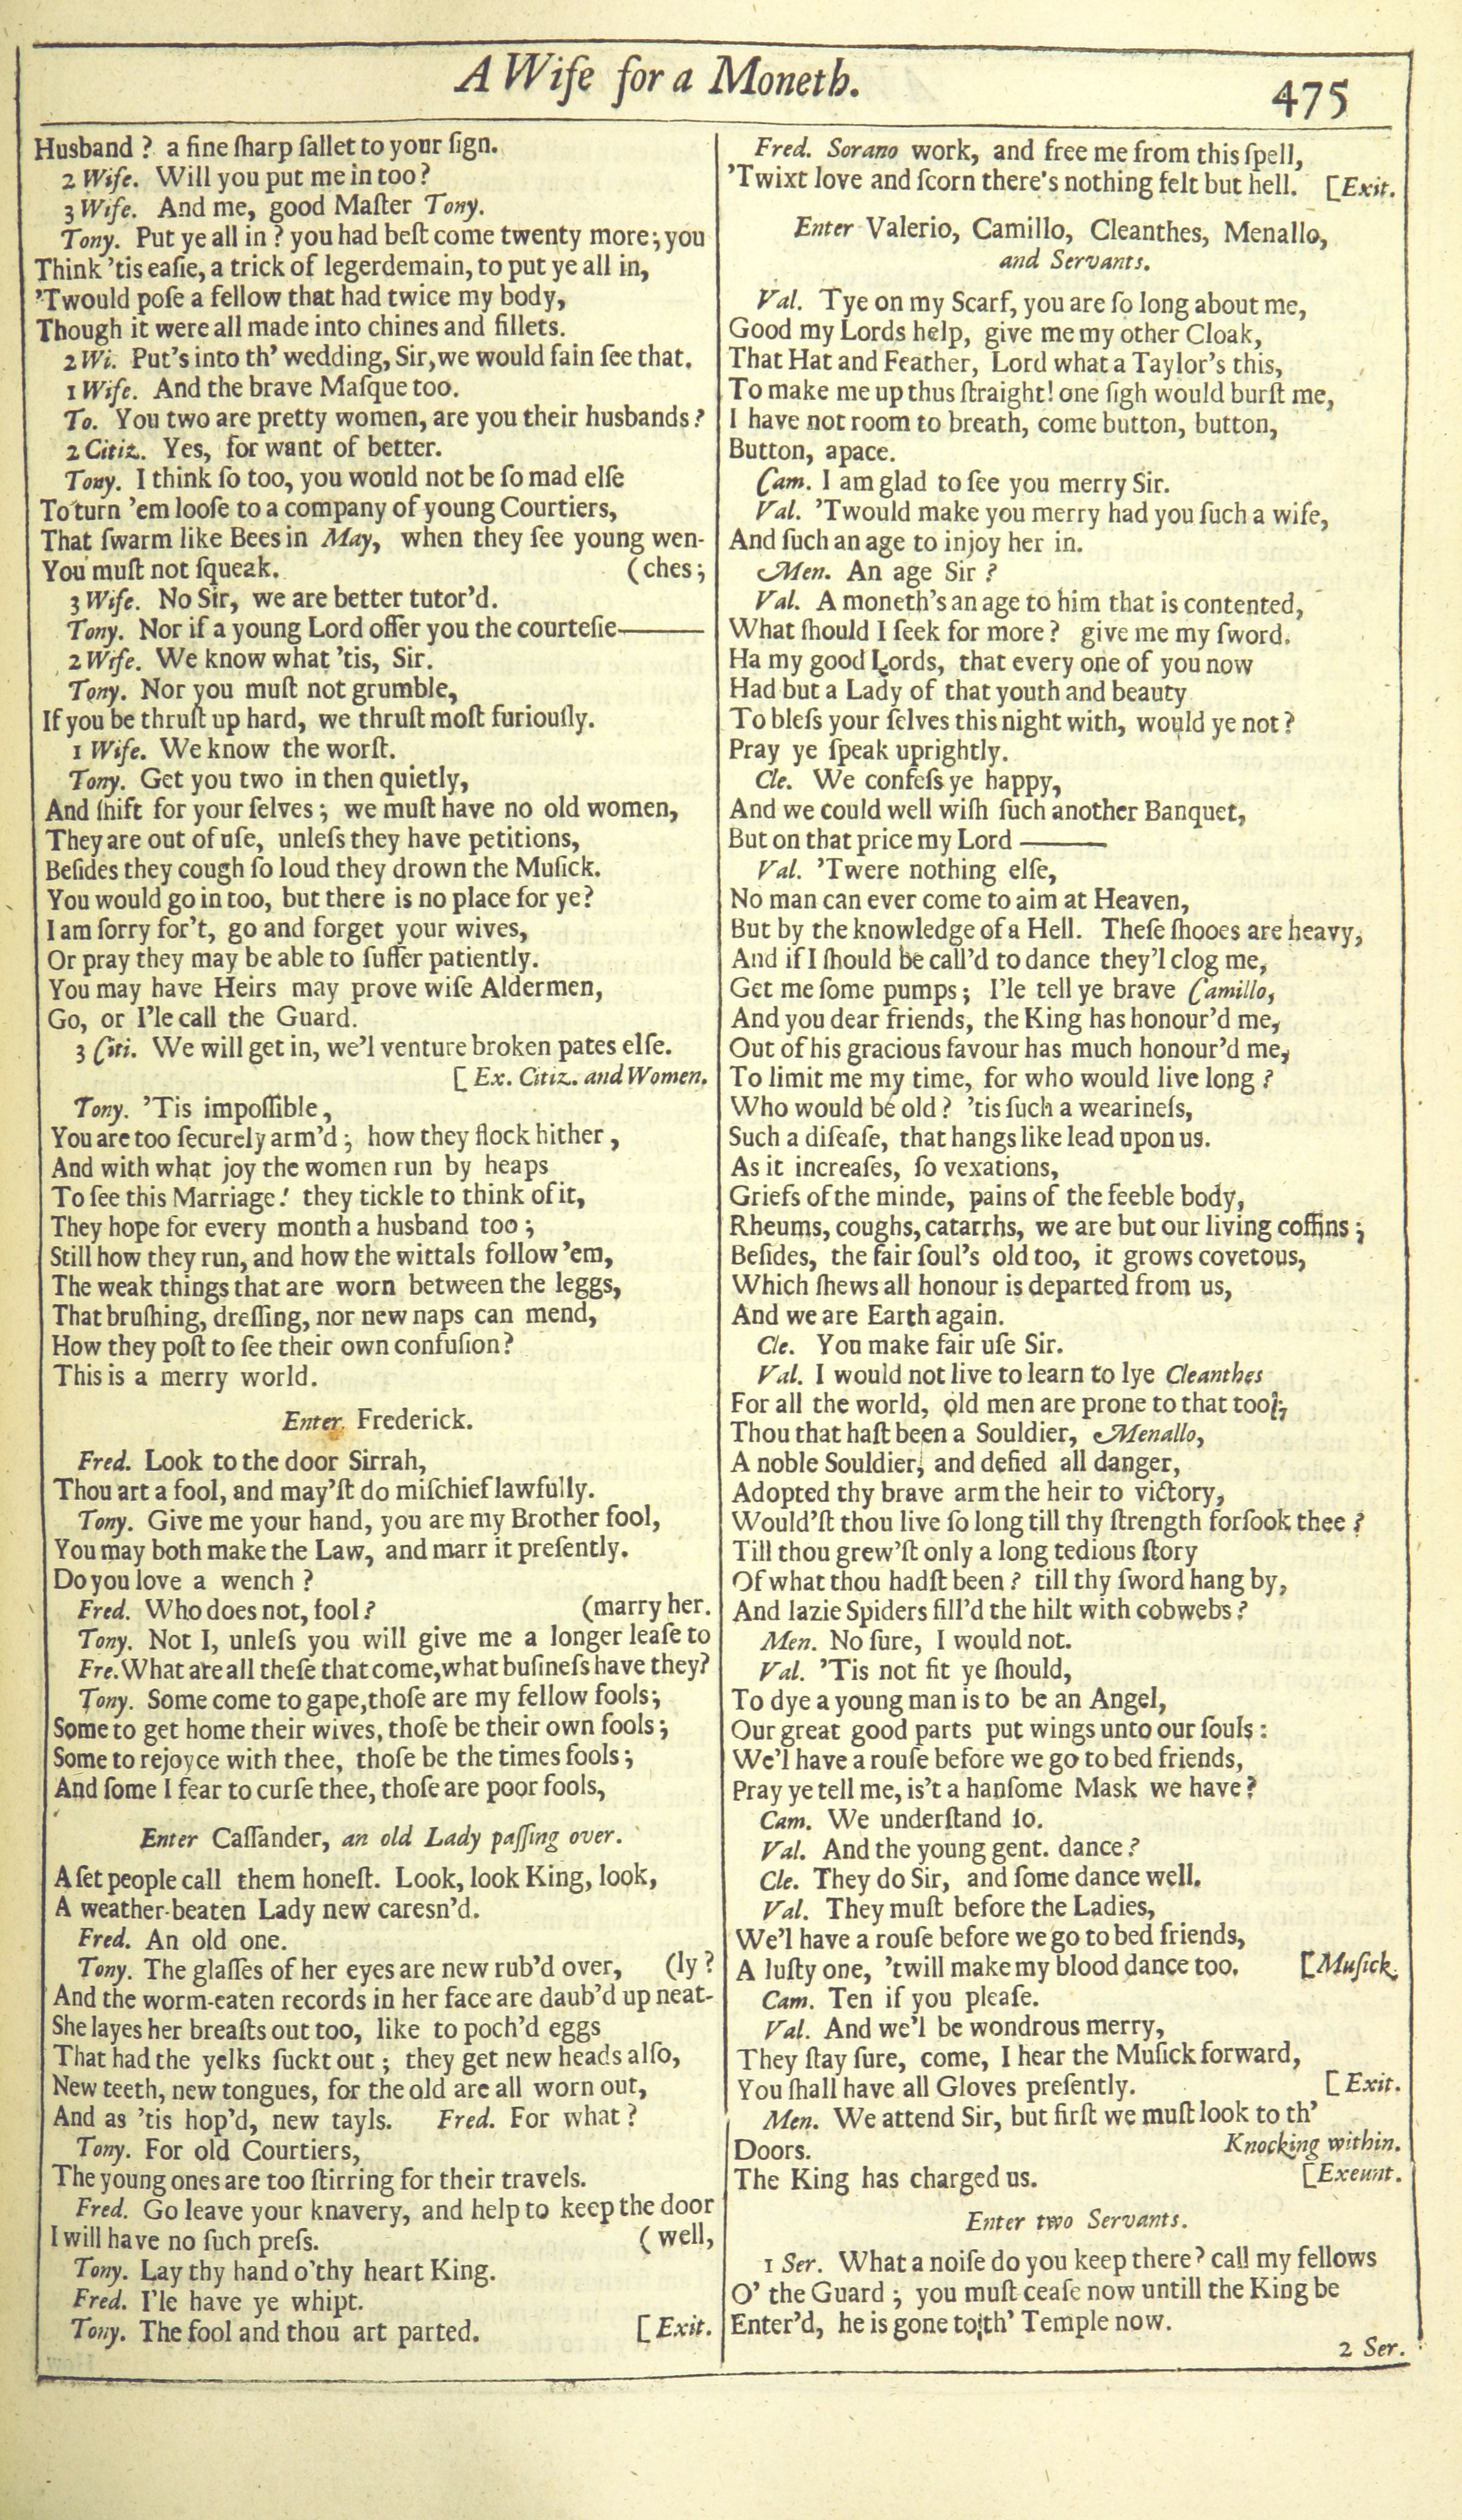 A Wife for a Moneth.
475
Husband ? a fine ſharp ſallet to your ſign.
2 Wife. Will you put me in too?
3 Wife. And me, good Maſter Tony.
Tony. Put ye all in ? you had beſt come twenty more; you
Think 'tis eaſie, a trick of legerdemain, to put ye all in,
'Twould poſe a fellow that had twice my body,
Though it were all made into chines and fillets.
2 Wi. Put's into th' wedding, Sir, we would fain ſee that.
1 Wife. And the brave Maſque too.
To. You two are pretty women, are you their husbands?
2 Citiz. Yes, for want of better.
Tony. I think ſo too, you would not be ſo mad elſe
To turn 'em looſe to a company of young Courtiers,
That ſwarm like Bees in May, when they ſee young wen-
You muſt not ſqueak. (ches;
3 Wife. No Sir, we are better tutor'd.
Tony. Nor if a young Lord offer you the courteſie———
2 Wife. We know what 'tis, Sir.
Tony. Nor you muſt not grumble,
If you be thruſt up hard, we thruſt moſt furiouſly.
1 Wife. We know the worſt.
Tony. Get you two in then quietly,
And ſhift for your ſelves; we muſt have no old women,
They are out of uſe, unleſs they have petitions,
Beſides they cough ſo loud they drown the Muſick.
You would go in too, but there is no place for ye?
I am ſorry for't, go and forget your wives,
Or pray they may be able to ſuffer patiently.
You may have Heirs may prove wiſe Aldermen,
Go, or I'le call the Guard.
3 Citi. We will get in, we'l venture broken pates elſe.
[Ex. Citiz. and Women.
Tony. 'Tis impoſſible,
You are too ſecurely arm'd; how they flock hither,
And with what joy the women run by heaps
To ſee this Marriage! they tickle to think of it,
They hope for every month a husband too;
Still how they run, and how the wittals follow 'em,
The weak things that are worn between the leggs,
That bruſhing, dreſſing, nor new naps can mend,
How they poſt to ſee their own confuſion?
This is a merry world.
Enter Frederick.
Fred. Look to the door Sirrah,
Thou art a fool, and may'ſt do miſchief lawfully.
Tony. Give me your hand, you are my Brother fool,
You may both make the Law, and marr it preſently.
Do you love a wench ?
Fred. Who does not, fool? (marry her.
Tony. Not I, unleſs you will give me a longer leaſe to
Fre. What are all theſe that come, what buſineſs have they?
Tony. Some come to gape, thoſe are my fellow fools;
Some to get home their wives, thoſe be their own fools;
Some to rejoyce with thee, thoſe be the times fools;
And ſome I fear to curſe thee, thoſe are poor fools,
Enter Caſſander, an old Lady paſſing over.
A ſet people call them honeſt. Look, look King, look,
A weather-beaten Lady new caresn'd.
Fred. An old one.
Tony. The glaſſes of her eyes are new rub'd over, (ly?
And the worm-eaten records in her face are daub'd up neat-
She layes her breaſts out too, like to poch'd eggs
That had the yelks ſuckt out; they get new heads alſo,
New teeth, new tongues, for the old are all worn out,
And as 'tis hop'd, new tayls. Fred. For what?
Tony. For old Courtiers,
The young ones are too ſtirring for their travels.
Fred. Go leave your knavery, and help to keep the door
I will have no ſuch preſs. (well,
Tony. Lay thy hand o'thy heart King.
Fred. I'le have ye whipt.
Tony. The fool and thou art parted. [Exit.
Fred. Sorano work, and free me from this ſpell,
'Twixt love and ſcorn there's nothing felt but hell. [Exit.
Enter Valerio, Camillo, Cleanthes, Menallo,
and Servants.
Val. Tye on my Scarf, you are ſo long about me,
Good my Lords help, give me my other Cloak,
That Hat and Feather, Lord what a Taylor's this,
To make me up thus ſtraight! one ſigh would burſt me,
I have not room to breath, come button, button,
Button, apace.
Cam. I am glad to ſee you merry Sir.
Val. 'Twould make you merry had you ſuch a wife,
And ſuch an age to injoy her in.
Men. An age Sir ?
Val. A moneth's an age to him that is contented,
What ſhould I ſeek for more? give me my ſword.
Ha my good Lords, that every one of you now
Had but a Lady of that youth and beauty
To bleſs your ſelves this night with, would ye not?
Pray ye ſpeak uprightly.
Cle. We confeſs ye happy,
And we could well wiſh ſuch another Banquet,
But on that price my Lord ———
Val. 'Twere nothing elſe,
No man can ever come to aim at Heaven,
But by the knowledge of a Hell. Theſe ſhooes are heavy,
And if I ſhould be call'd to dance they'l clog me,
Get me ſome pumps; I'le tell ye brave Camillo,
And you dear friends, the King has honour'd me,
Out of his gracious favour has much honour'd me,
To limit me my time, for who would live long ?
Who would be old? 'tis ſuch a wearineſs,
Such a diſeaſe, that hangs like lead upon us.
As it increaſes, ſo vexations,
Griefs of the minde, pains of the feeble body,
Rheums, coughs, catarrhs, we are but our living coffins;
Beſides, the fair ſoul's old too, it grows covetous,
Which ſhews all honour is departed from us,
And we are Earth again.
Cle. You make fair uſe Sir.
Val. I would not live to learn to lye Cleanthes
For all the world, old men are prone to that too;
Thou that haſt been a Souldier, Menallo,
A noble Souldier, and defied all danger,
Adopted thy brave arm the heir to victory,
Would'ſt thou live ſo long till thy ſtrength forſook thee ?
Till thou grew'ſt only a long tedious ſtory
Of what thou hadſt been? till thy ſword hang by,
And lazie Spiders fill'd the hilt with cobwebs?
Men. No ſure, I would not.
Val. 'Tis not fit ye ſhould,
To dye a young man is to be an Angel,
Our great good parts put wings unto our ſouls:
We'l have a rouſe before we go to bed friends,
Pray ye tell me, is't a hanſome Mask we have?
Cam. We underſtand ſo.
Val. And the young gent. dance?
Cle. They do Sir, and ſome dance well.
Val. They muſt before the Ladies,
We'l have a rouſe before we go to bed friends,
A luſty one, 'twill make my blood dance too. [Muſick.
Cam. Ten if you pleaſe.
Val. And we'l be wondrous merry,
They ſtay ſure, come, I hear the Muſick forward,
You ſhall have all Gloves preſently. [Exit.
Men. We attend Sir, but firſt we muſt look to th'
Doors. Knocking within.
The King has charged us. [Exeunt.
Enter two Servants.
1 Ser. What a noiſe do you keep there? call my fellows
O' the Guard; you muſt ceaſe now untill the King be
Enter'd, he is gone to th' Temple now.
2 Ser.